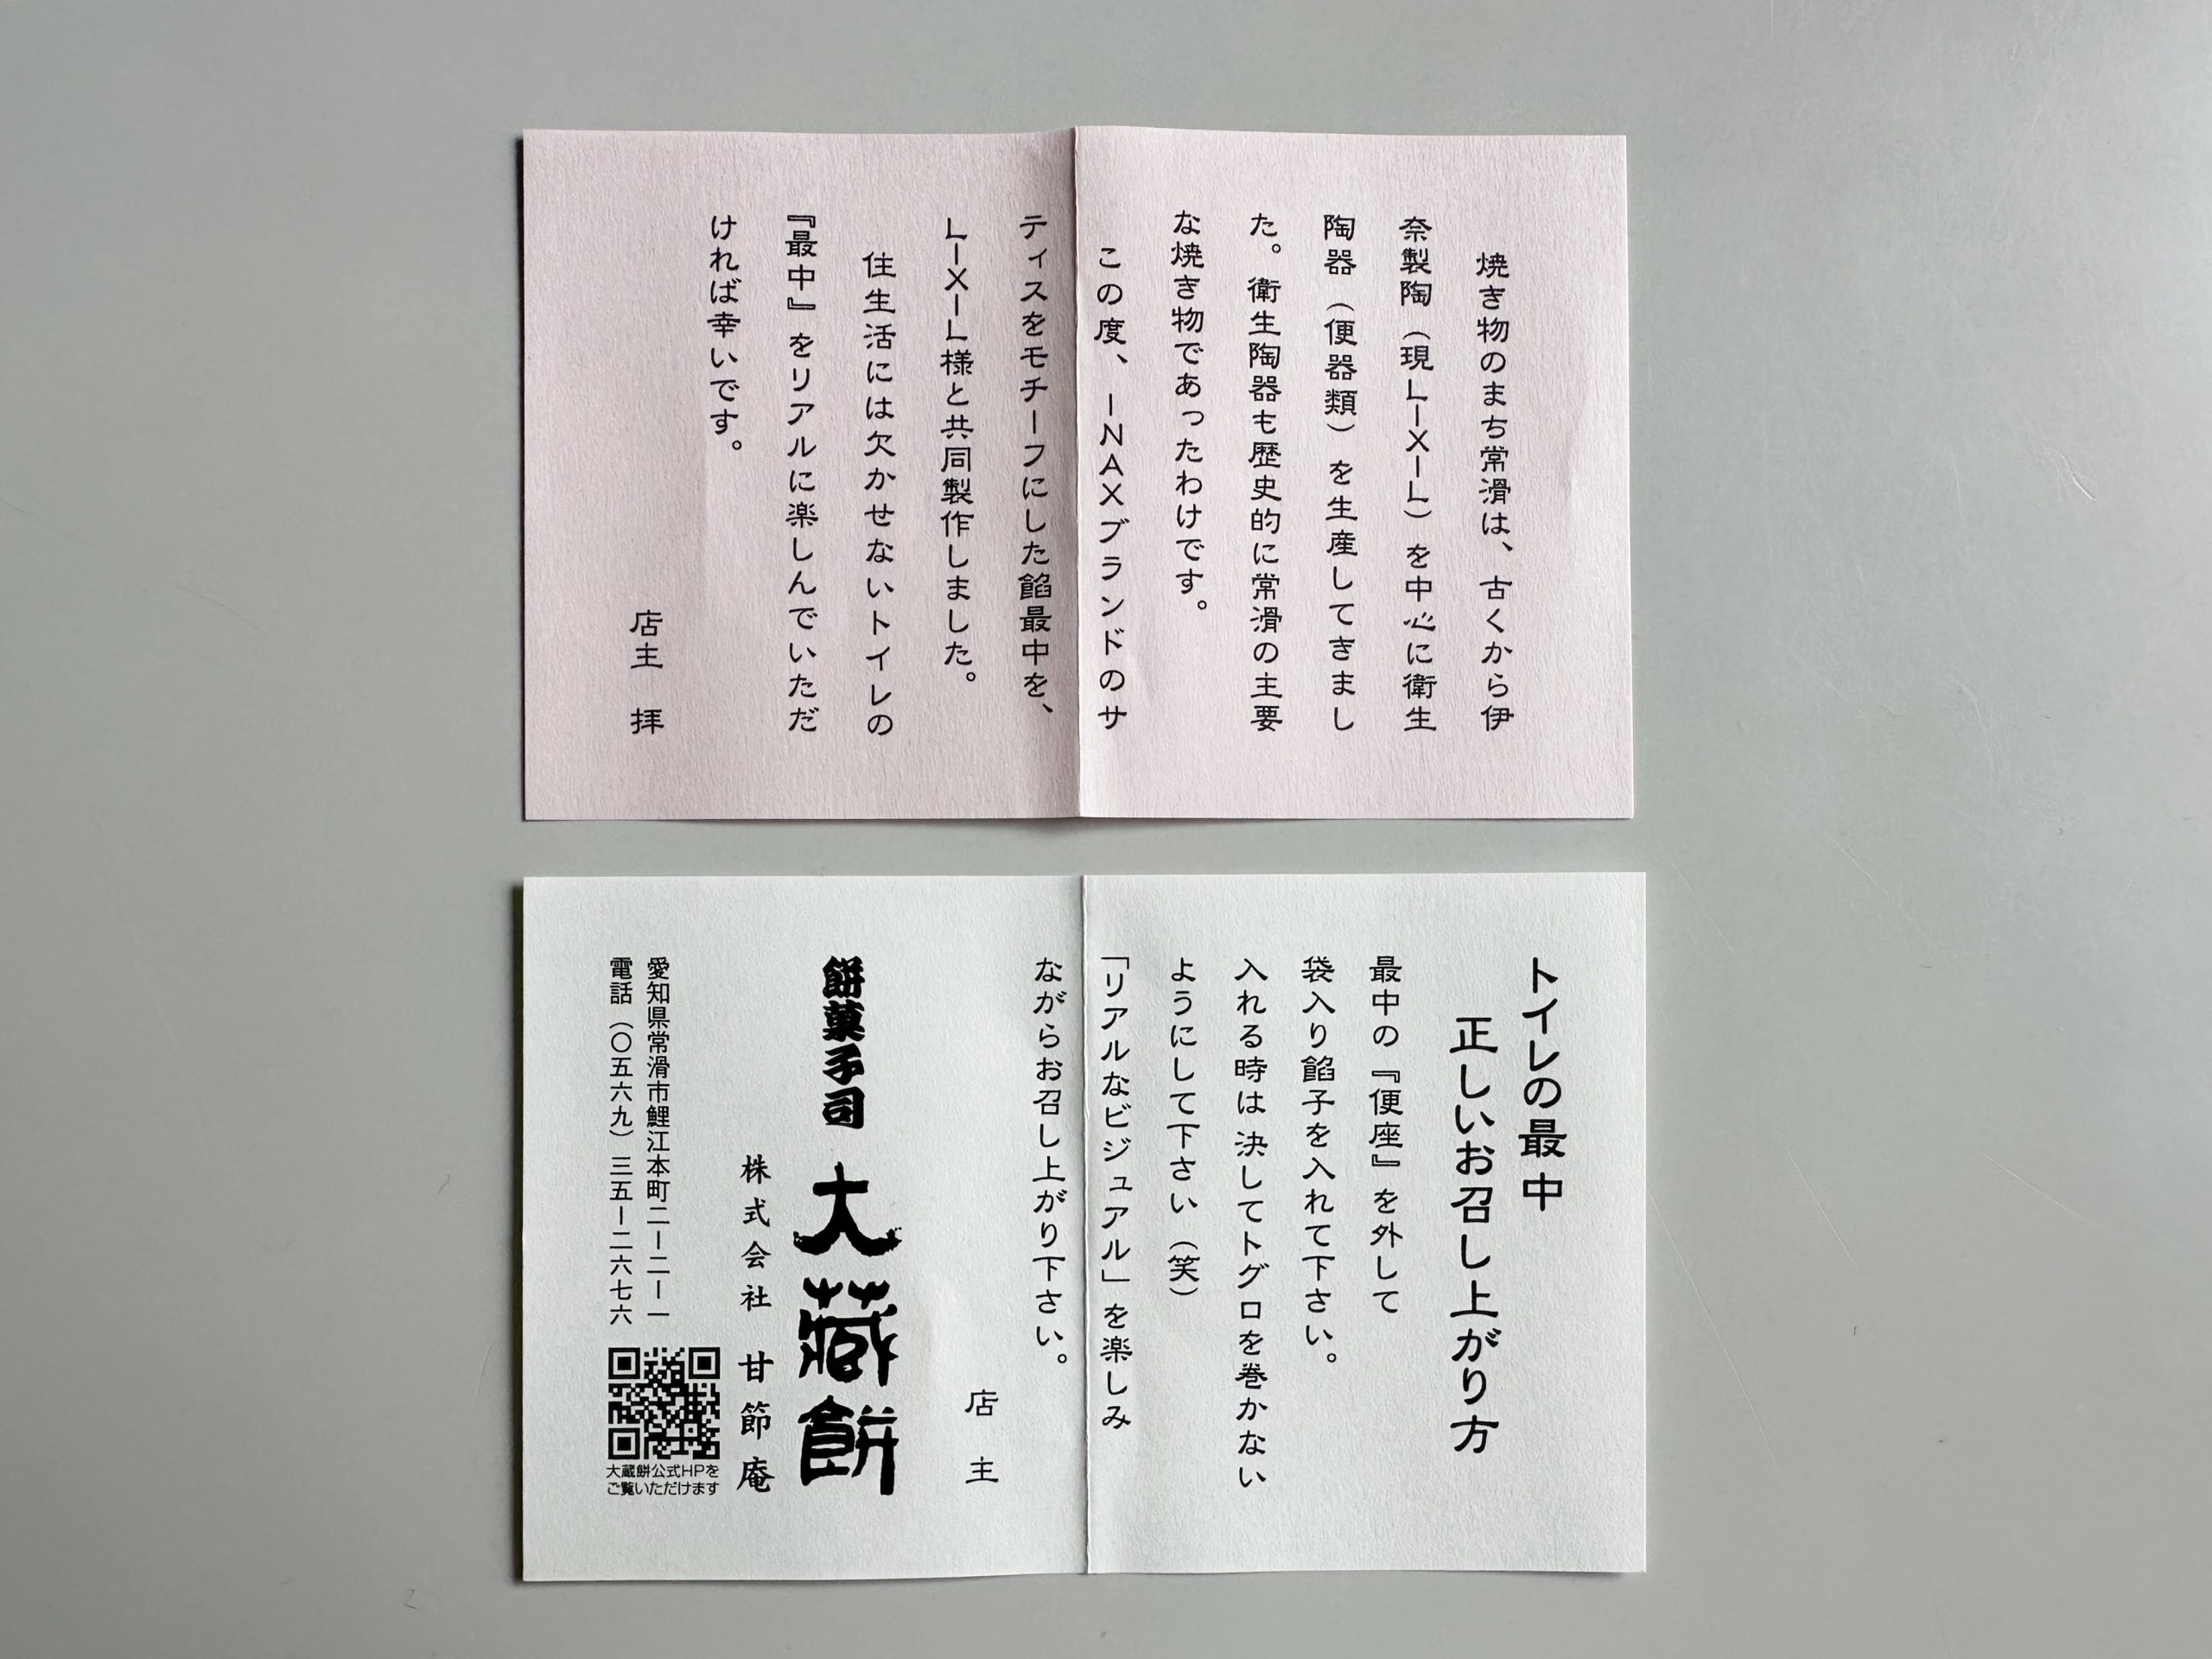 焼き物のまち常滑は、古くから伊
奈製陶（現LIXIL）を中心に衛生
陶器（便器類）を生産してきまし
た。衛生陶器も歴史的に常滑の主要
な焼き物であったわけです。
この度、INAXブランドのサ
ティスをモチーフにした餡最中を、
LIXIL様と共同製作しました。
住生活には欠かせないトイレの
『最中』をリアルに楽しんでいただ
ければ幸いです。
店主　拝
トイレの最中
正しいお召し上がり方
最中の『便座』を外して
袋入り餡子を入れて下さい。
入れる時は決してトグロを巻かない
ようにして下さい（笑）
「リアルなビジュアル」を楽しみ
ながらお召し上がり下さい。
店主
餅菓子司 大蔵餅
株式会社 甘節庵
愛知県常滑市鯉江本町二ー二ー一
電話（〇五六九）三五ー二六七六
大蔵餅公式HPを
ご覧いただけます